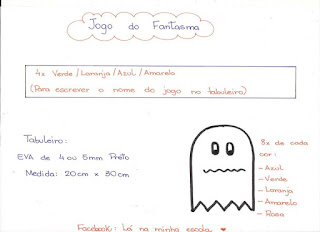 Jogo do Fantasma
4x Verde / Laranja / Azul / Amarelo
(Para escrever o nome do jogo no tabuleiro)
Tabuleiro:
EVA de 4 ou 5mm Preto
Medida: 20cm x 30cm
8x de cada
cor:
- Azul
- Verde
- Laranja
- Amarelo
- Rosa
Facebook: Lá na minha escola